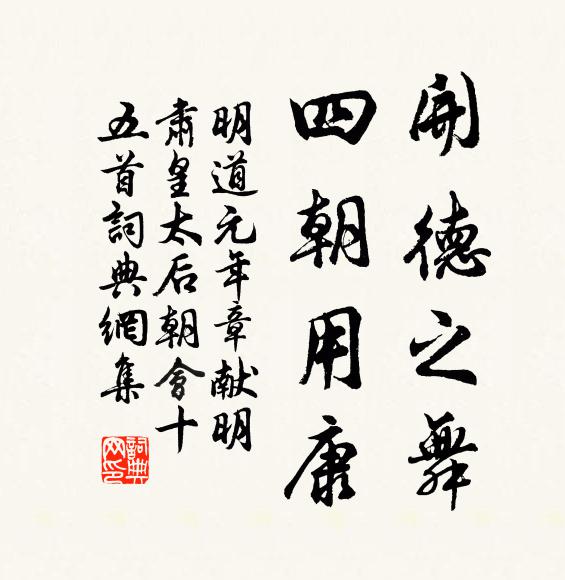 開德之舞
四朝用康
明道元年章献明
肅皇太后朝會十
五首詞典網集
詞典网印